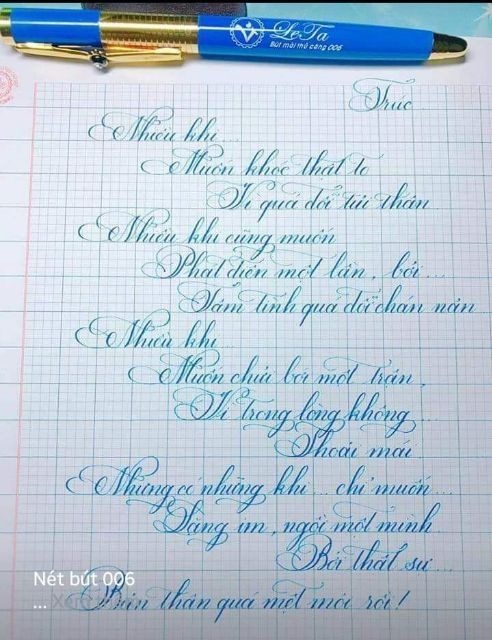 LeTa
Bút mài thủ công 006
Trúc
Nhiều khi...
Muốn khóc thật to
Vì quá đỗi tủi thân
Nhiều khi cũng muốn
Phát điên một lần, bởi...
Tâm tình quá đỗi chán nản
Nhiều khi...
Muốn chửi bới một trận,
Vì trong lòng không...
Thoải mái
Nhưng có những khi... chỉ muốn...
Lặng im, ngồi một mình
Bởi thật sự...
Bản thân quá mệt mỏi rồi!
Nét bút 006
...